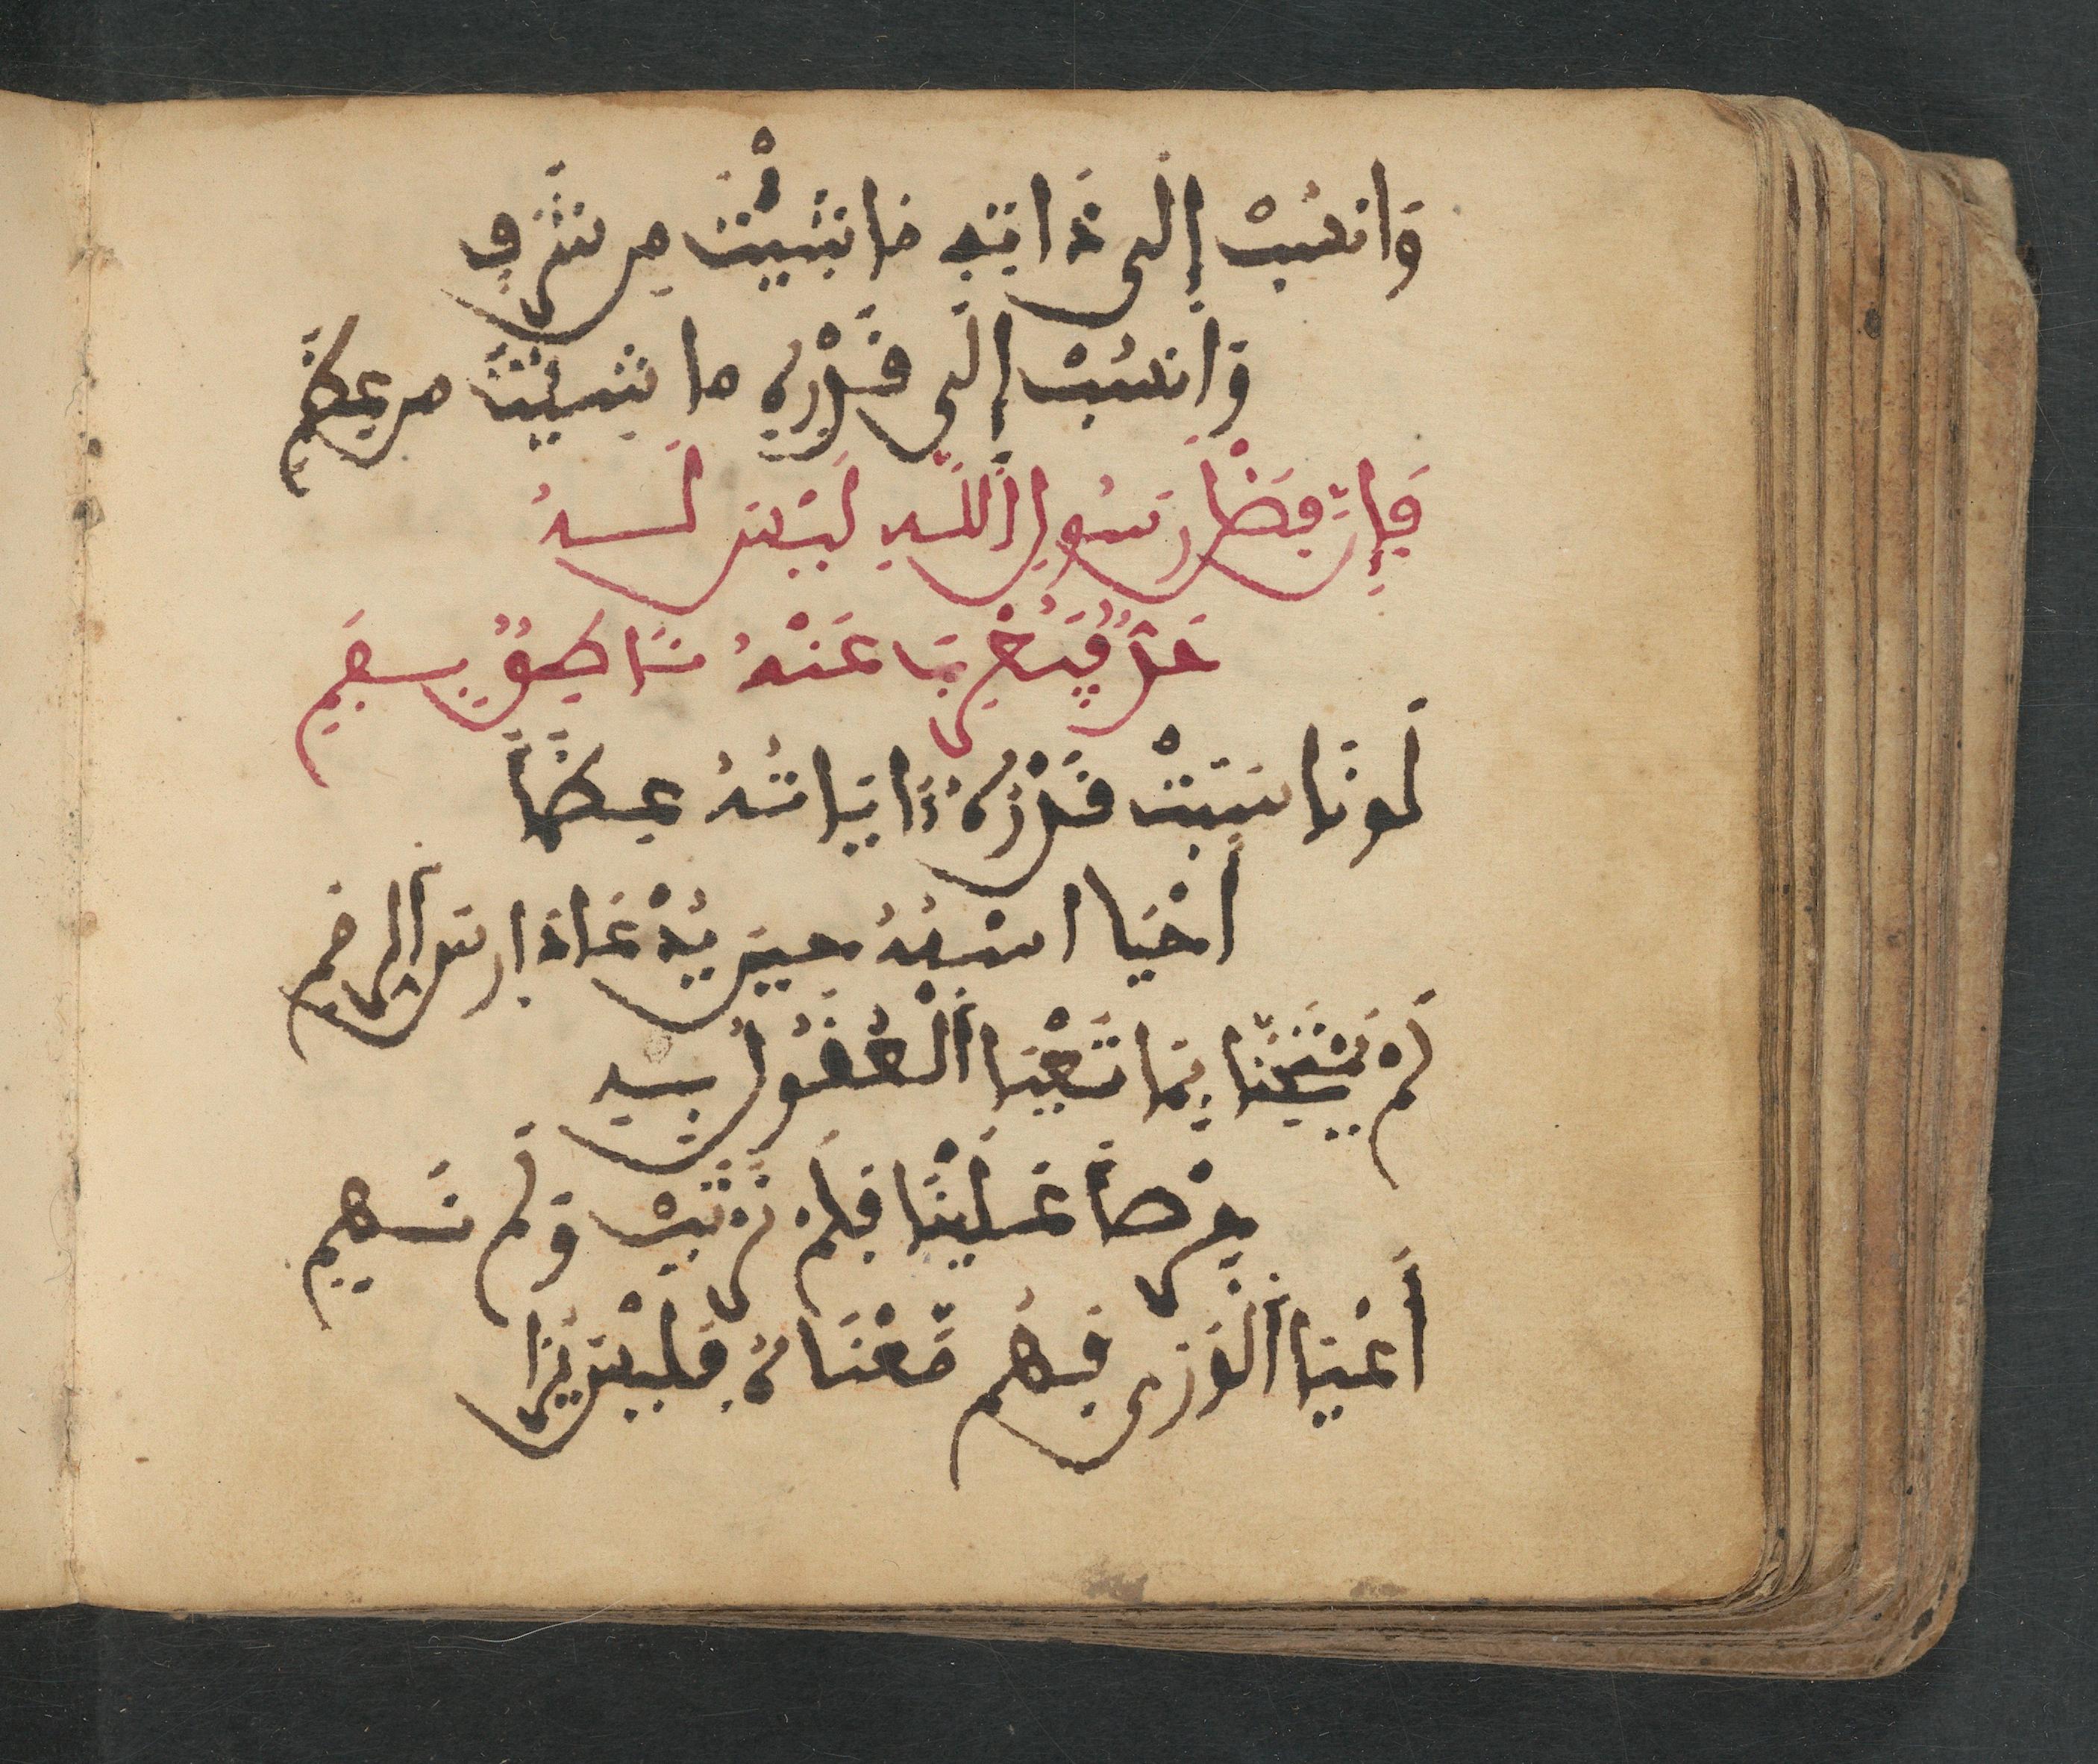 وَانْسُبْ إِلَى ذَاتِهِ مَا شِئْتَ مِن شَرَفٍ
وَانْسُبْ إِلَى قَدْرِهِ مَا شِئْتَ مِن عِظَمِ
فَإِنَّ فَضْلَ رَسُولِ اللَّهِ لَيْسَ لَهُ
حَدٌّ فَيُعْرِبَ عَنْهُ نَاطِقٌ بِفَمِ
لَوْ نَاسَبَتْ قَدْرَهُ ءَايَاتُهُ عِظَمًا
أَحْيَا اسْمُهُ حِينَ يُدْعَى دَارِسَ الرِّمَمِ
لَمْ يَمْتَحِنَّا بِمَا تَعْيَا الْعُقُولُ بِهِ
حِرْصًا عَلَيْنَا فَلَمْ نَرْتَبْ وَلَمْ نَهِمِ
أَعْيَا الْوَرَى فَهْمُ مَعْنَاهُ فَلَيْسَ يُرَى